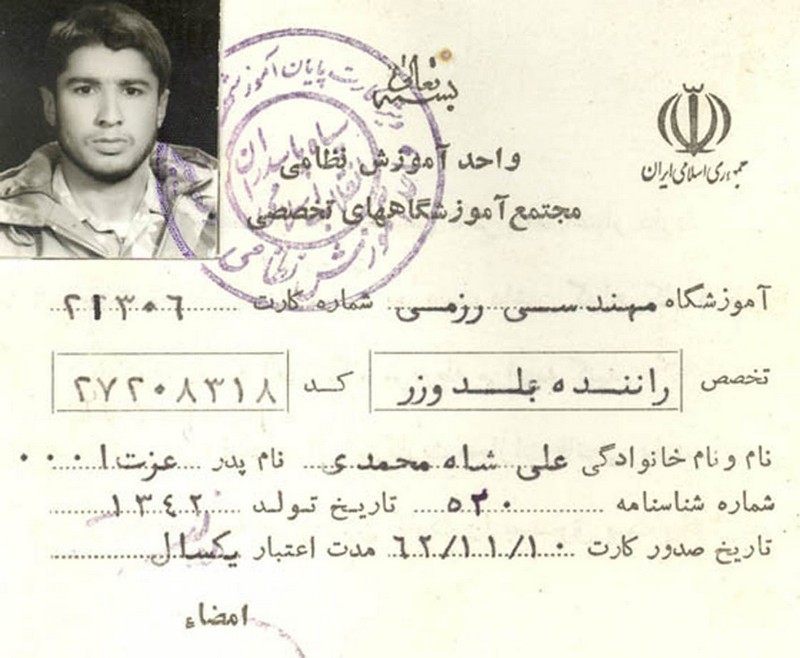 بسمه تعالی
جمهوری اسلامی ایران
واحد آموزش نظامی
مجتمع آموزشگاههای تخصصی
آموزشگاه مهندسی رزمی شماره کارت ۲۱۳۰۶
تخصص راننده بلدوزر کد ۲۷۲۰۸۳۱۸
نام و نام خانوادگی علی شاه محمدی نام پدر عزت ا...
شماره شناسنامه ۵۳۰ تاریخ تولد ۱۳۴۲
تاریخ صدور کارت ۶۲/۱۱/۱۰ مدت اعتبار یکسال
امضاء
سپاه پاسداران